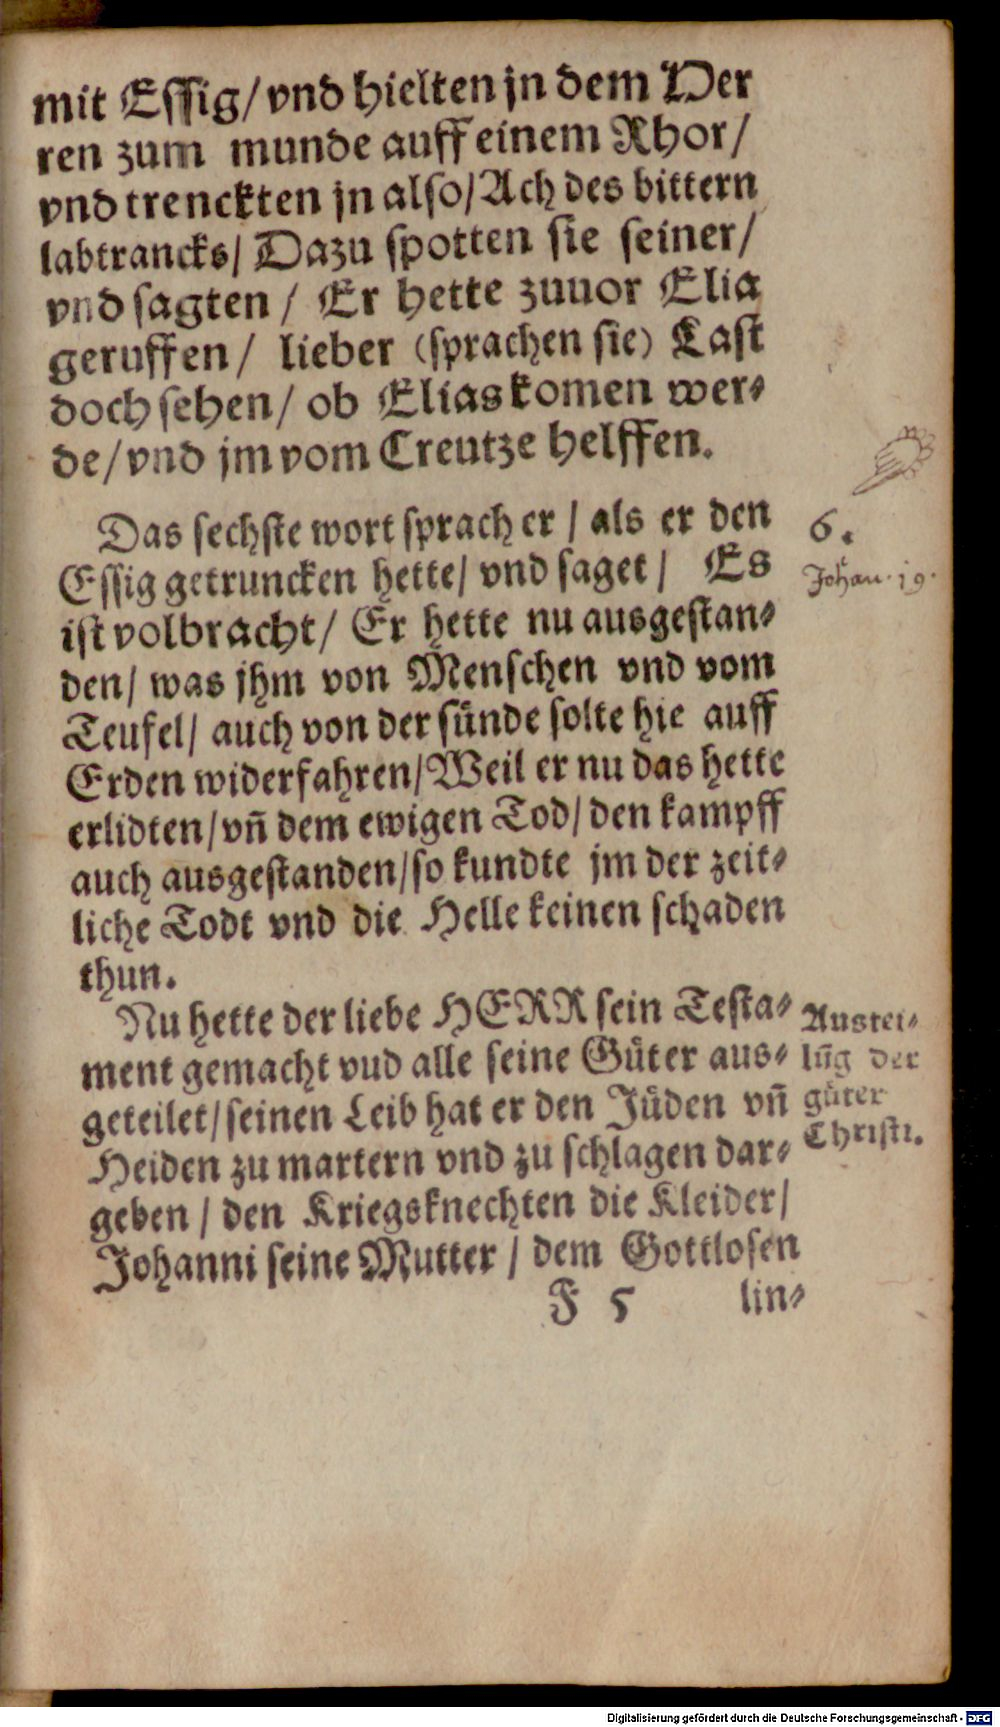 mit Essig/ vnd hielten jn dem Der
ren zum munde auff einem Rhor/
vnd trenckten jn also/ Ach des bittern
labtrancks/ Dazu spotten sie seiner/
vnd sagten / Er hette zuuor Elia
geruffen/ lieber (sprachen sie) Last
doch sehen/ ob Elias komen wer⸗
de/ vnd jm vom Creutze helffen.
Das sechste wort sprach er / als er den
6.
Essig getruncken hette/ vnd saget / Es
Johan. 19.
ist volbracht/ Er hette nu ausgestan⸗
den/ was jhm von Menschen vnd vom
Teufel/ auch von der sünde solte hie auff
Erden widerfahren/ Weil er nu das hette
erlidten/ vñ dem ewigen Tod/ den kampff
auch ausgestanden/ so kundte jm der zeit⸗
liche Todt vnd die Helle keinen schaden
thun.
Nu hette der liebe HERR sein Testa⸗
ment gemacht vud alle seine Güter aus⸗
geteilet/ seinen Leib hat er den Jüden vñ
Heiden zu martern vnd zu schlagen dar⸗
geben / den Kriegsknechten die Kleider/
Johanni seine Mutter / dem Gottlosen
Austei⸗
lũg der
güter
Christi.
F 5 lin⸗
Digitalisierung gefördert durch die Deutsche Forschungsgemeinschaft - DFG